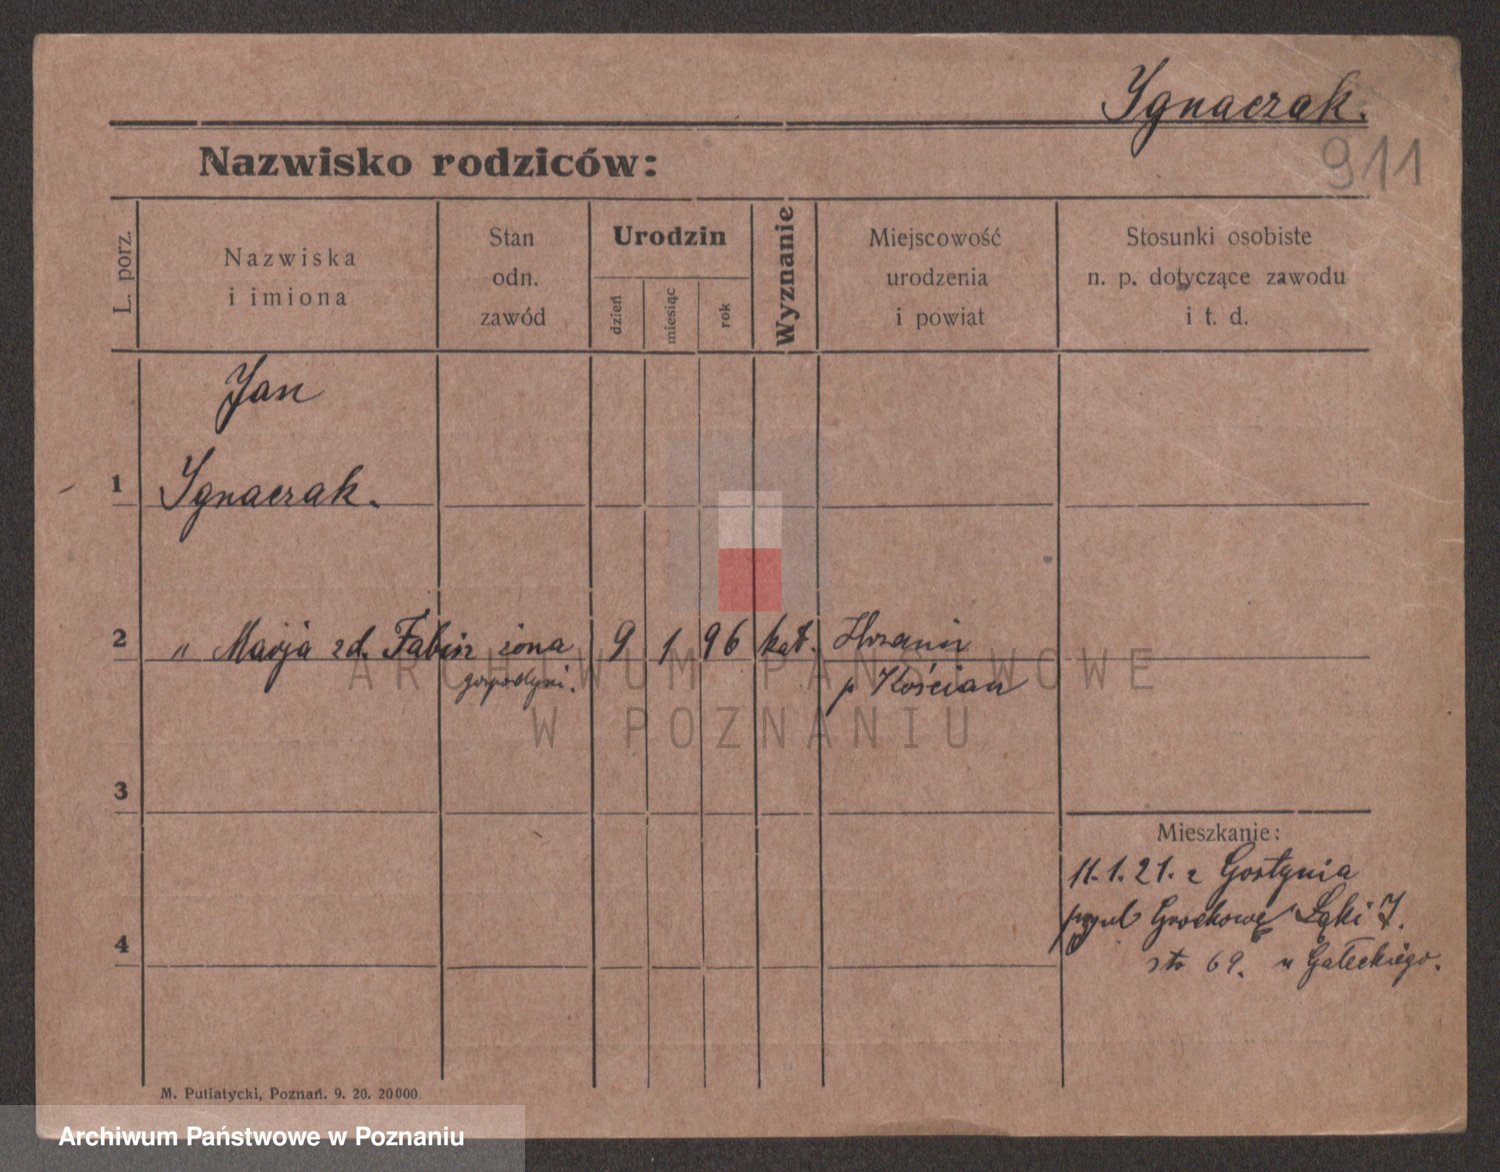 Ygnaczak.
911
Nazwisko rodziców:
L. porz.
Nazwiska
i imiona
Stan
odn.
zawód
Urodzin
dzień
miesiąc
rok
Wyznanie
Miejscowość
urodzenia
i powiat
Stosunki osobiste
n. p. dotyczące zawodu
i t. d.
Jan
1 Ygnaczak.
2 " Marja zd. Fabisz żona 9 1 96 kat.
gospodyni. p Kościan
3
Mieszkanie:
11.1.21. z Gostynia
Grochowe Łąki 7.
str 69. u Gałeckiego.
4
M. Putiatycki, Poznań. 9. 20. 20000.
ARCHIWUM PAŃSTWOWE
W POZNANIU
Archiwum Państwowe w Poznaniu